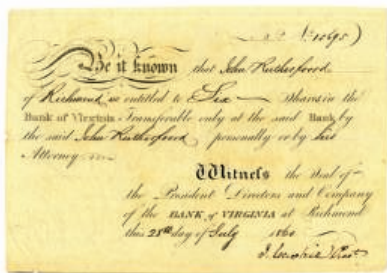 No. 1695
Be it known that John Rutherfoord
of Richmond is entitled to Six Shares in the
Bank of Virginia Transferable only at the said Bank by
the said John Rutherfoord personally or by his
Attorney
Witness the Seal of
the President Directors and Company
of the BANK of VIRGINIA at Richmond
this 28th day of July 1860
Prest